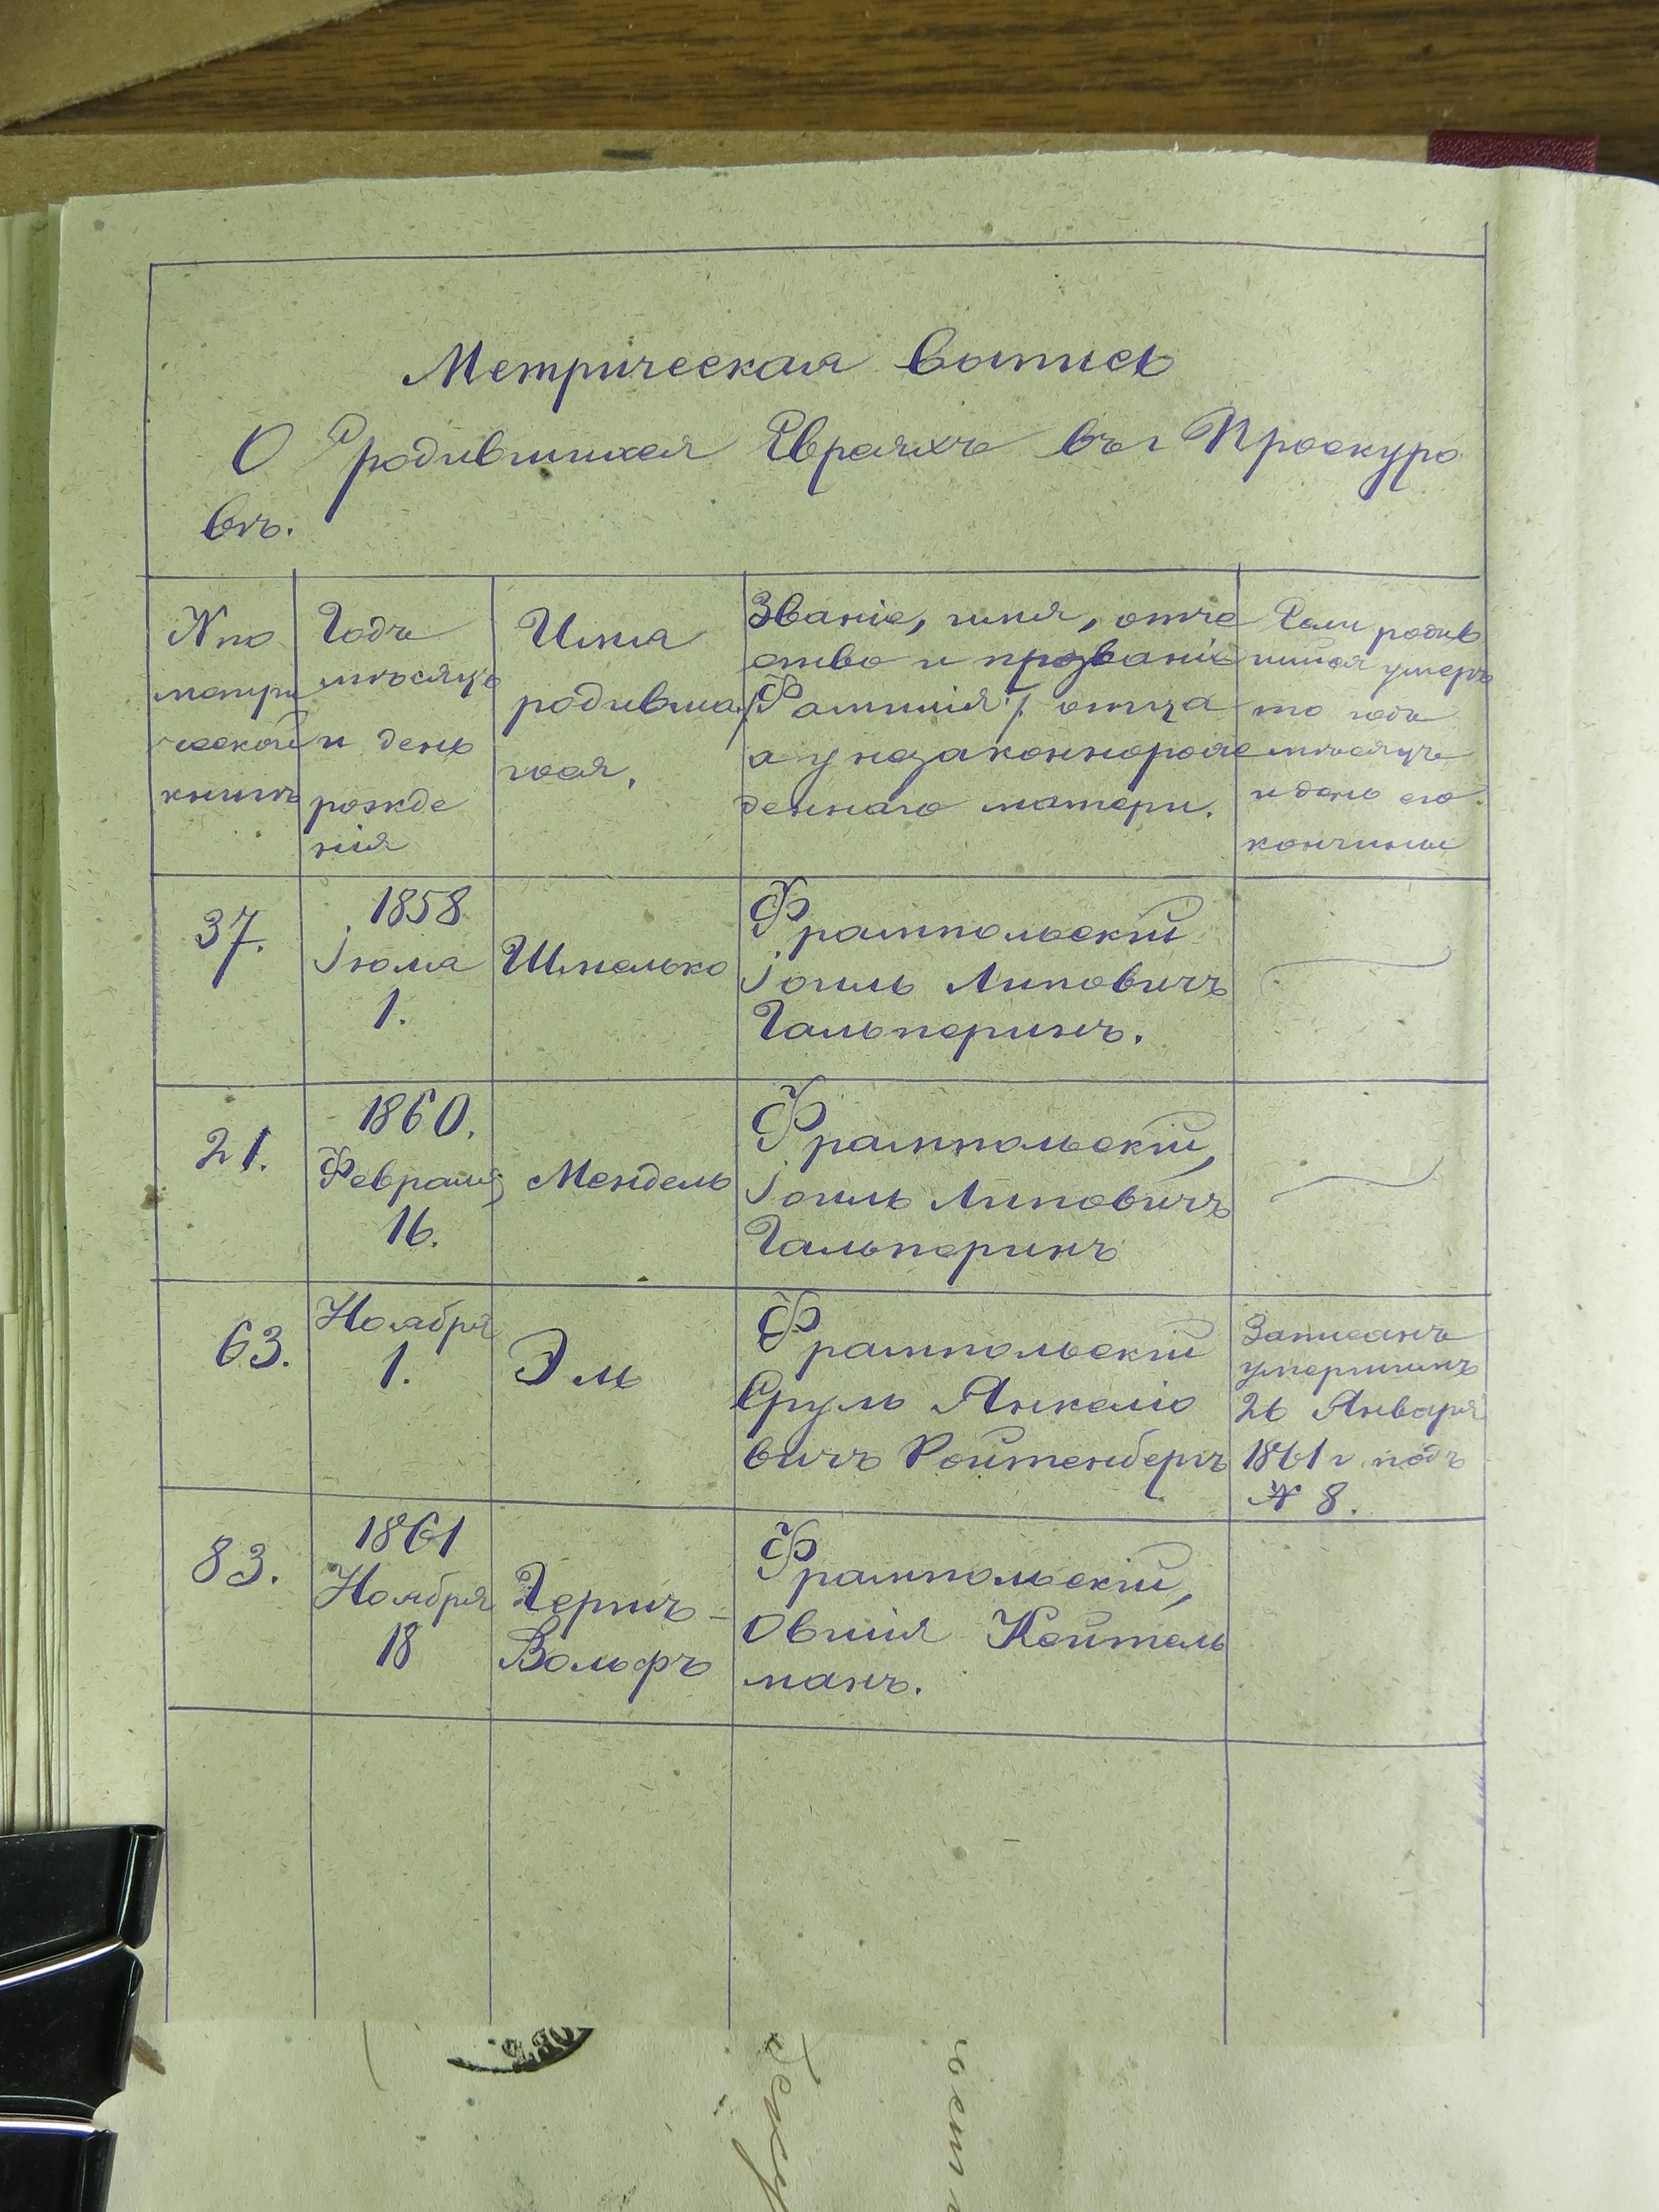 Метрическая выпись
О Родившихся Евреяхъ въ г Проскуро
вѣ.
№ по
метри
ческой
книгѣ
Годъ
мѣсяцъ
и день
рожде
нія
Имя
родивша
гося.
Званіе, имя, отче
ство и прозваніе
/Фамилія/ отца
а у незаконнорож
деннаго матери.
Если родив
шійся умеръ
то годъ
мѣсяцъ
и день его
кончины
37.
1858
Іюля
1.
Шмелько
Фрампольскій
Іоиль Липовичъ
Гальперинъ.
21.
1860.
Февраля
16.
Мендель
Фрампольскій,
Іоиль Липовичъ
Гальперинъ
63.
Ноября
1.
Эль
Фрампольскій
Сруль Янкеліо
вичъ Ройтенбергъ
Записанъ
умершимъ
26 Января
1861 г. подъ
№ 8.
83.
1861
Ноября
18
Гершъ-
Вольфъ
Фрампольскій,
Овшія Кейтель
манъ.